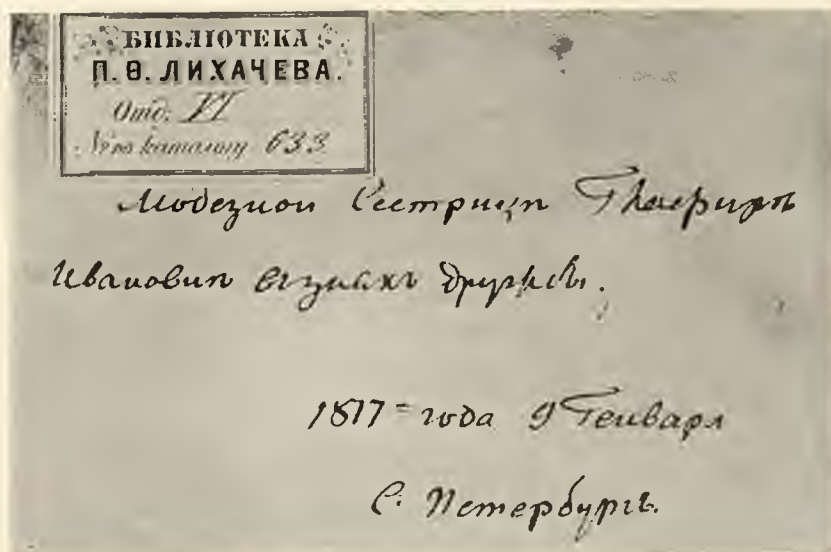 БИБЛІОТЕКА
П. Ѳ. ЛИХАЧЕВА.
Отд: VI
№ по каталогу 633
Любезной Сестрицѣ
Ивановнѣ въ знакъ дружбы.
1817 = года 9 Генваря
С. Петербургъ.